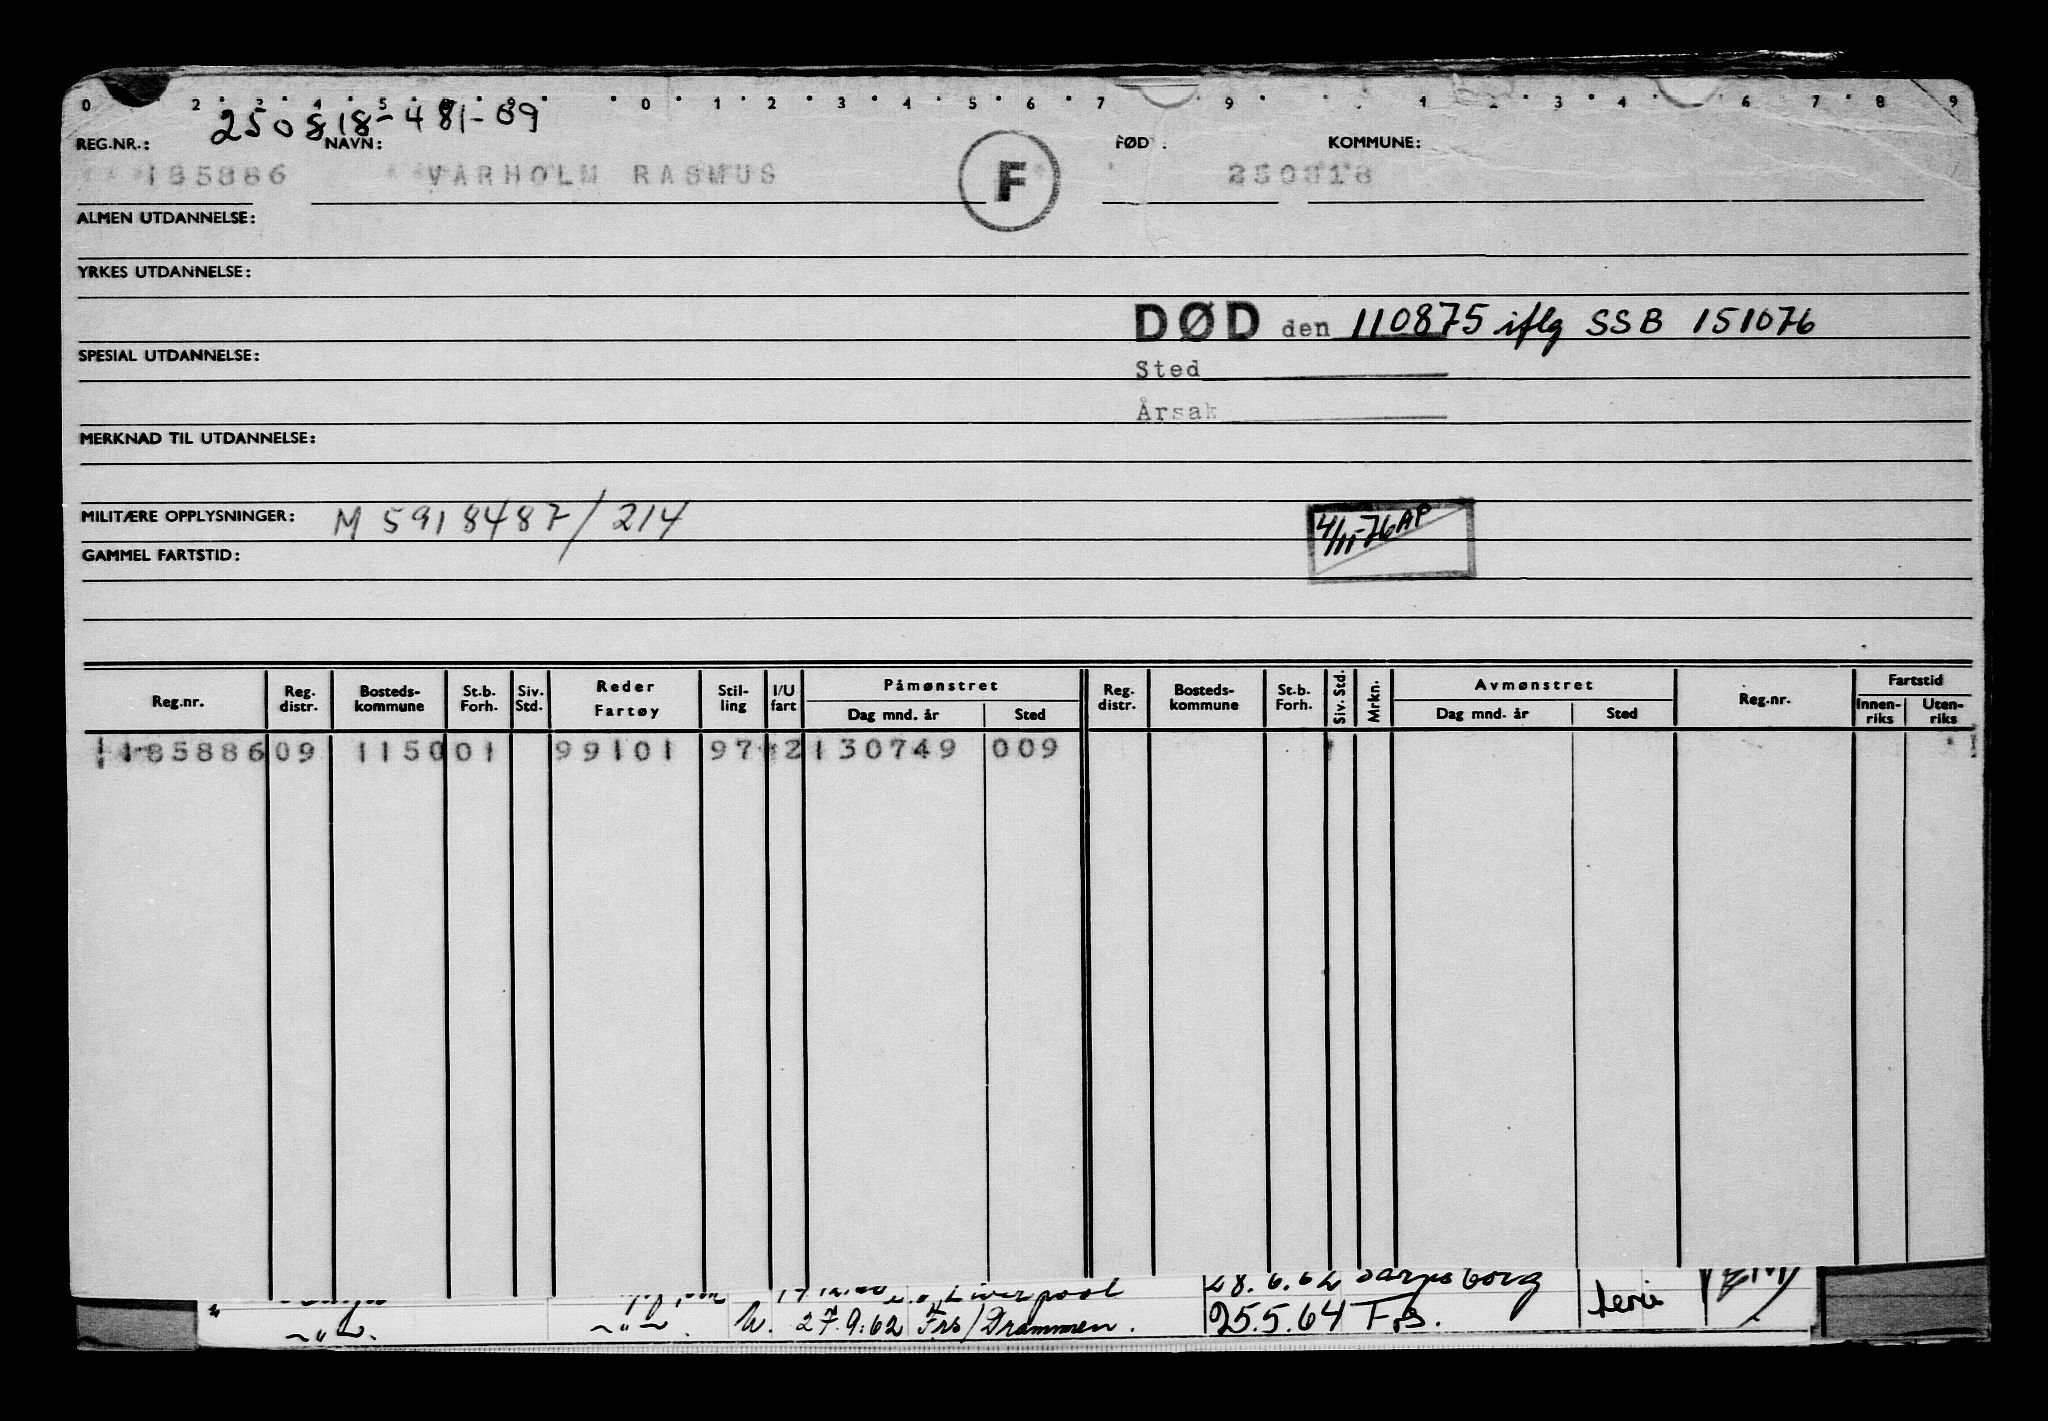 0 2 3 4 5 0 1 2 3 4 5 6 7 9 1 2 3 4 6 7 8 9
250818-481-09
REG.NR.: NAVN: FØD : KOMMUNE:
185886 VARHOLM RASMUS F 250818
ALMEN UTDANNELSE:
YRKES UTDANNELSE:
DØD den 110875 iflg SSB 151076
SPESIAL UTDANNELSE:
Sted
Årsak
MERKNAD TIL UTDANNELSE:
MILITÆRE OPPLYSNINGER: M 5918487/214
4/11-76 AP
GAMMEL FARTSTID:
Reg.nr. Reg. distr. Bosteds-kommune St.b. Forh. Siv. Std. Reder Fartøy Stil-ling I/U fart Påmønstret Dag mnd. år Sted Reg. distr. Bosteds-kommune St.b. Forh. Siv. Std. Mrkn. Avmønstret Dag mnd. år Sted Reg.nr. Fartstid Innen-riks Uten-riks
185886 09 1150 01 99101 97 2 130749 009
Liverpool 28.6.62 Sarpsborg
—"— —"— . 27.9.62 Frs/Drammen. 25.5.64 F.S.